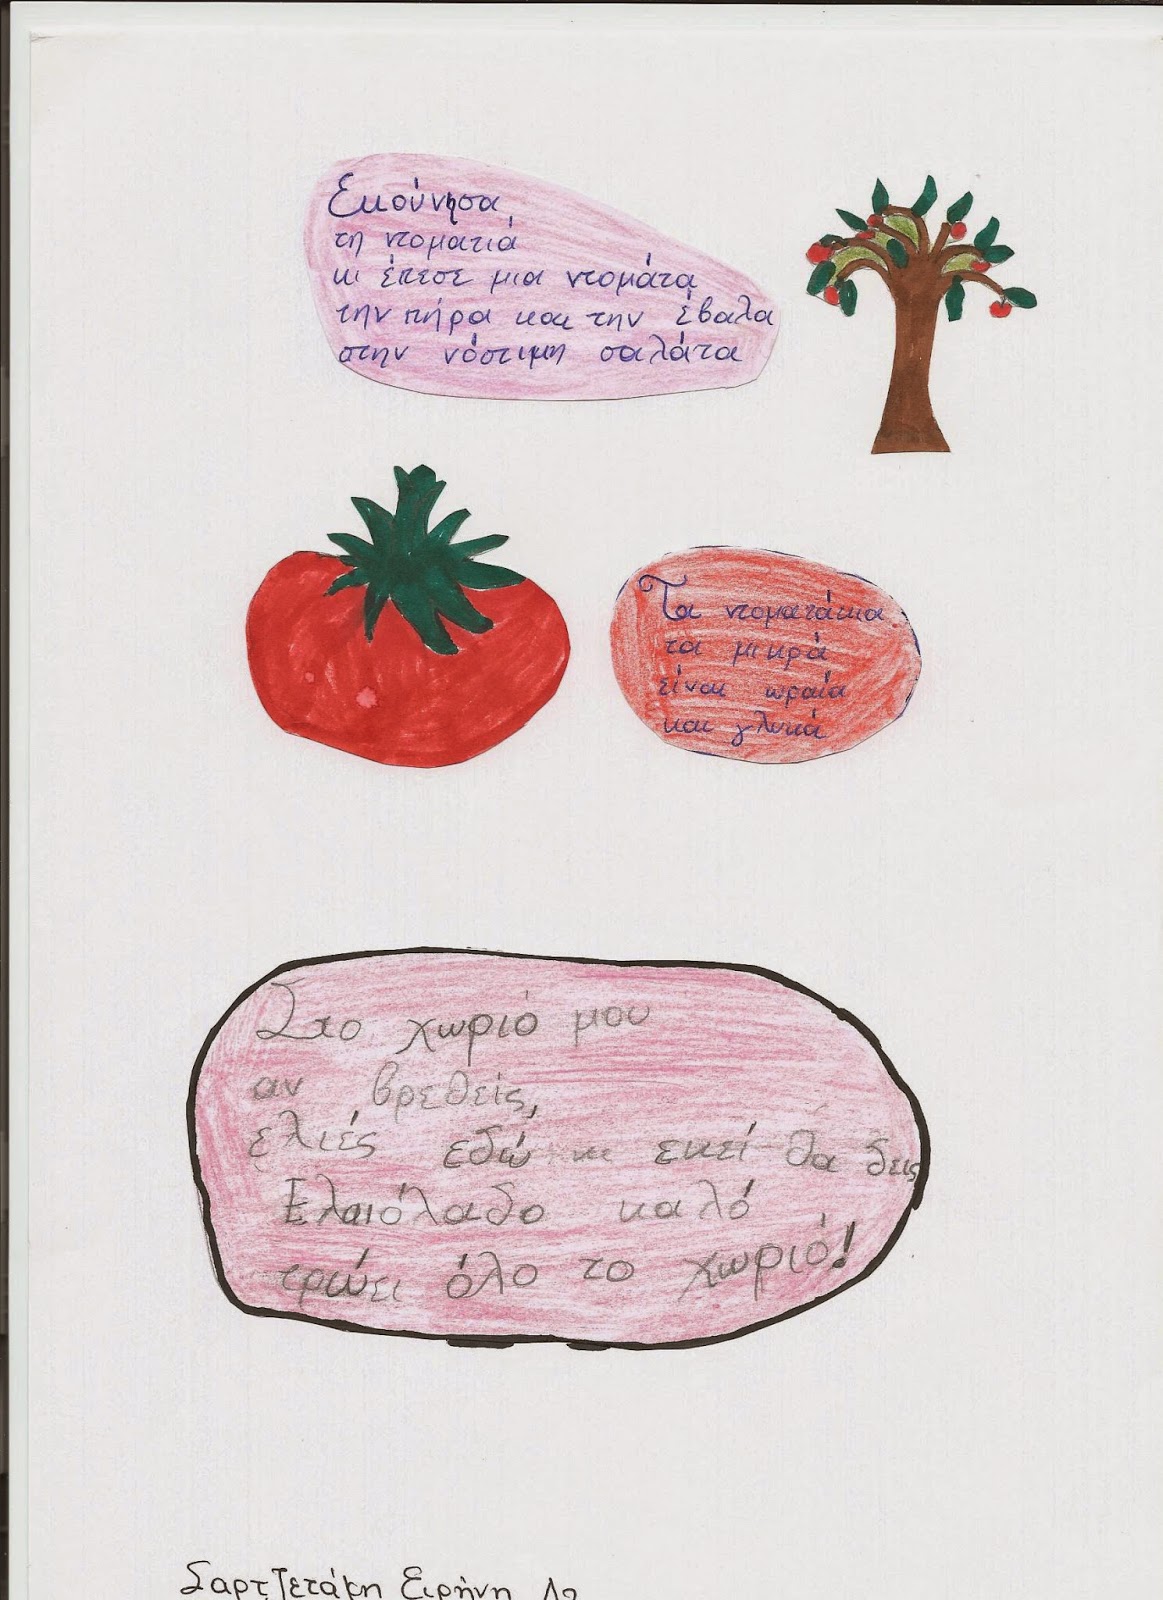 Εκούνησα
τη ντοματιά
κι έπεσε μια ντομάτα
την πήρα και την έβαλα
στην νόστιμη σαλάτα
Τα ντοματάκια
τα μικρά
είναι ωραία
και γλυκά
Στο χωριό μου
αν βρεθείς,
ελιές εδώ κι εκεί θα δεις
Ελαιόλαδο καλό
τρώει όλο το χωριό!
Σαρτζετάκη Ειρήνη Δ2